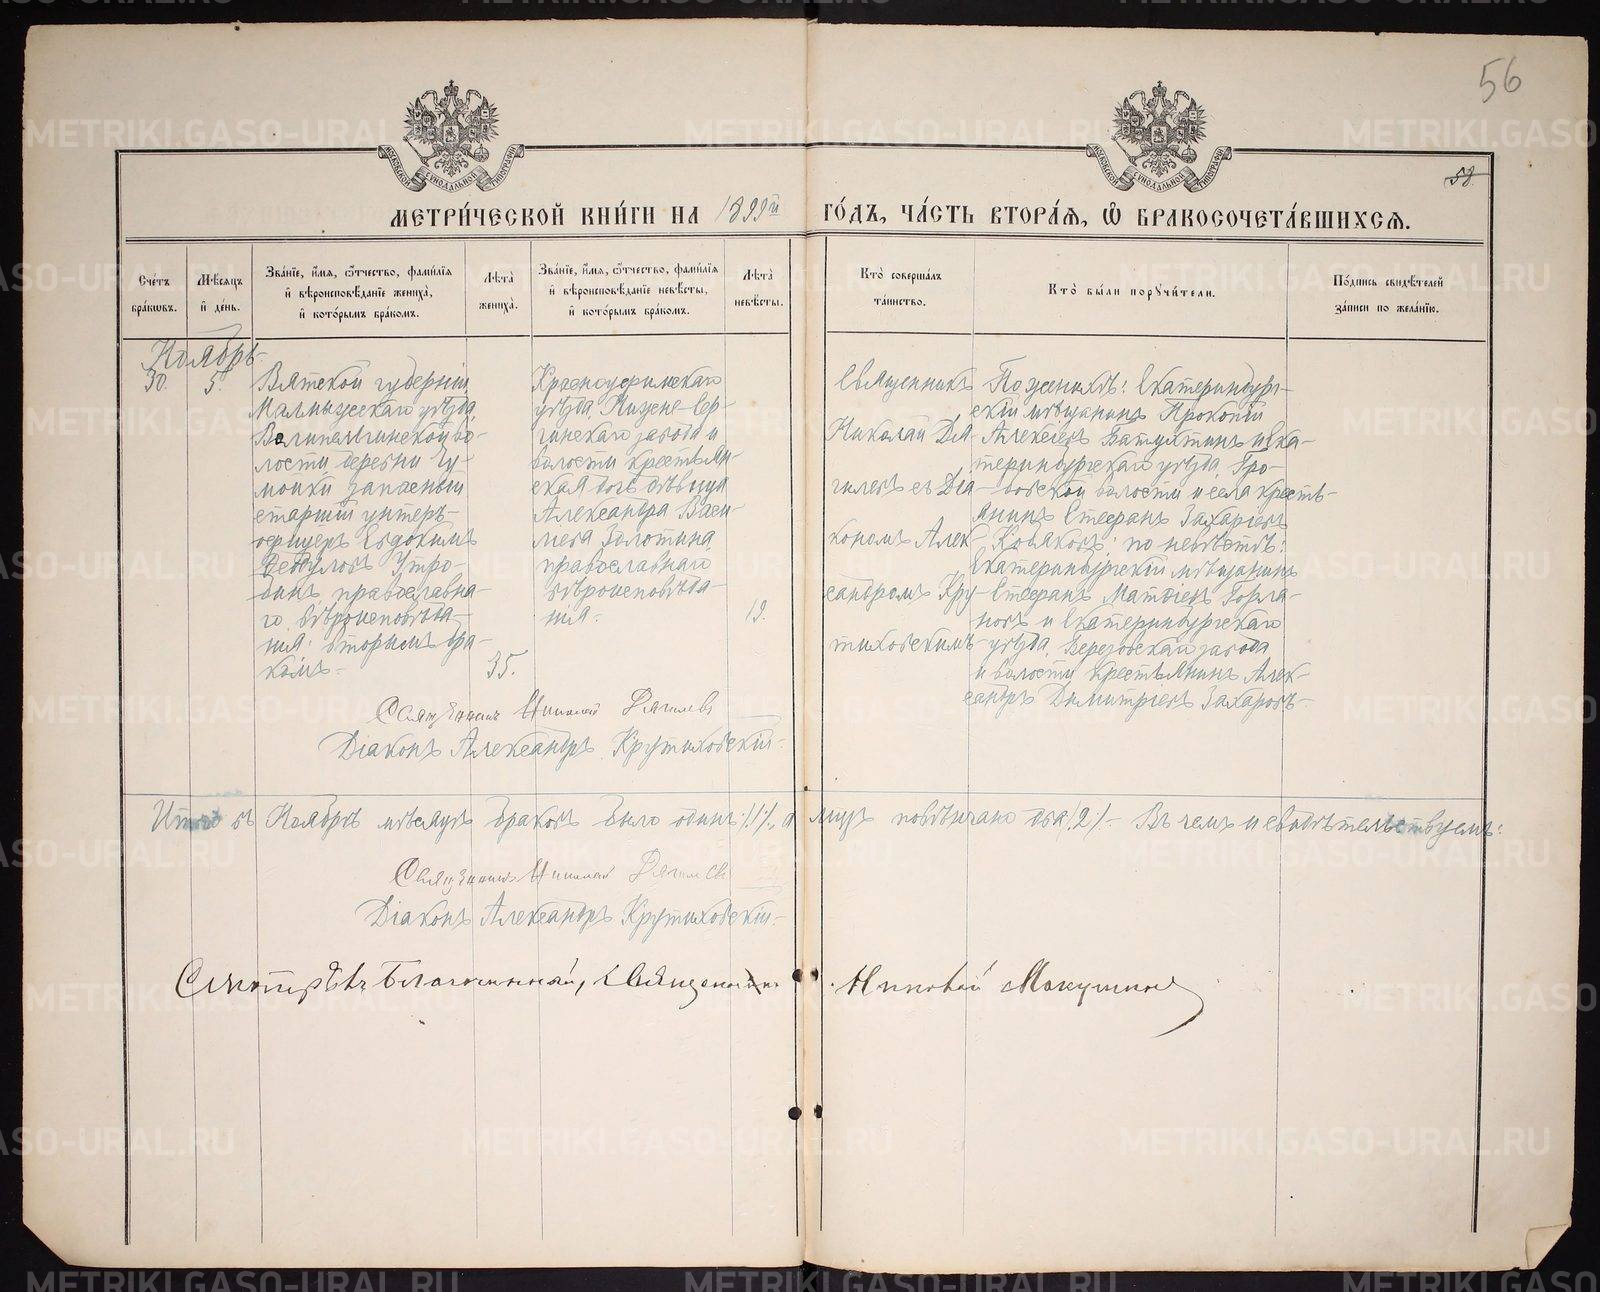 56
58
МЕТРИ́ЧЕСКОЙ КНИ́ГИ НА 1899й ГО́ДЪ, ЧА́СТЬ ВТОРА́Ѧ, Ѽ БРАКОСОЧЕТА́ВШИХСѦ.
Сче́тъ бра́кωвъ.
Мѣ́сяцъ и҆ де́нь.
Зва́нїе, и҆́мѧ, ѻ҆́тчество, фами́лїѧ
и҆ вѣроисповѣ́данїе жениха̀,
и҆ кото́рымъ бра́комъ.
Лѣ́та̀ жениха̀.
Зва́нїе, и҆́мѧ, ѻ҆́тчество, фами́лїѧ
и҆ вѣроисповѣ́данїе невѣ́сты,
и҆ кото́рымъ бра́комъ.
Лѣ́та̀ невѣ́сты.
Кто̀ соверша́лъ
та́инство.
Кто̀ бы́ли порꙋчи́тели.
По́дпись свидѣ́телей
за́писи по жела́нїю.
Ноябрь
30.
5.
Вятской губерніи
Малмыжскаго уѣзда,
во-
лости деревни
запасный
старшій унтеръ-
офицеръ Евдокимъ
Утро-
бинъ, православна-
го вѣроисповѣда-
нія: вторымъ бра-
комъ.
35.
Красноуфимскаго
уѣзда, Нижне-Сер-
гинскаго завода и
волости крестьян-
ская дочь дѣвица
Александра Васи-
льева Золотина,
православнаго
вѣроисповѣда-
нія.
19.
Священникъ
Николай Дяг-
илевъ съ Діа-
кономъ Алек-
сандромъ Кру-
тиховскимъ
По женихѣ: Екатеринбург-
скій мѣщанинъ Прокопій
Алексѣевъ Батухтинъ и Ека-
теринбургскаго уѣзда, Гро-
бовской волости и села кресть-
янинъ Стефанъ Захаріевъ
по невѣстѣ:
Екатеринбургскій мѣщанинъ
Стефанъ Матвіевъ Горла-
новъ и Екатеринбургскаго
уѣзда, Березовскаго завода
и волости крестьянинъ Алек-
сандръ Димитріевъ Захаровъ
Священникъ Николай Дягилевъ
Діаконъ Александръ Крутиховскій
Итого въ Ноябрѣ мѣсяцѣ браковъ было одинъ /1/, а лицъ повѣнчано два /2/. Въ чемъ и свидѣтельствуемъ:
Священникъ Николай Дягилевъ
Діаконъ Александръ Крутиховскій
Смотрѣлъ Благочинный, Священникъ Николай Макушинъ
METRIKI.GASO-URAL.RU